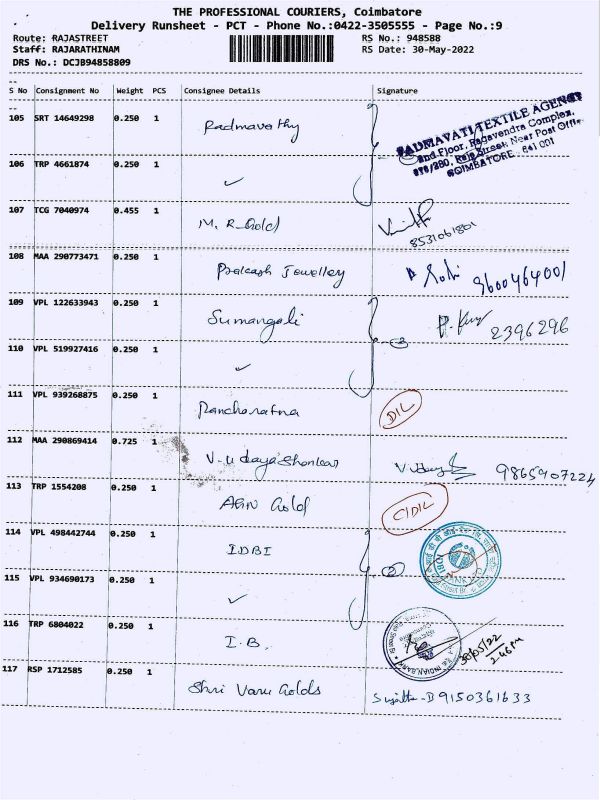 THE PROFESSIONAL COURIERS, Coimbatore
Delivery Runsheet - PCT - Phone No.:0422-3505555 - Page No.:9
Route: RAJASTREET RS No.: 948588
Staff: RAJARATHINAM RS Date: 30-May-2022
DRS No.: DCJB94858809
S No Consignment No Weight PCS Consignee Details Signature
105 SRT 14649298 0.250 1 Padmavathy
PADMAVATI TEXTILE AGENCY
2nd Floor, Ragavendra Complex,
Raja Street, Near Post Office
COIMBATORE - 641 001
106 TRP 4661874 0.250 1 ✓
107 TCG 7040974 0.455 1 M. R. Gold 8531061801
108 MAA 290773471 0.250 1 Prakash Jewellery 9600464001
109 VPL 122633943 0.250 1 Sumangali 2396296
110 VPL 519927416 0.250 1 ✓
111 VPL 939268875 0.250 1 Pancharatna D/L
112 MAA 290869414 0.725 1 V. Udayashankar 9865907224
113 TRP 1554208 0.250 1 AGN Gold C/D/L
114 VPL 498442744 0.250 1 IDBI 2
115 VPL 934690173 0.250 1 ✓
116 TRP 6804022 0.250 1 I.B. INDIAN BANK 30/05/22
2.46 PM
117 RSP 1712585 0.250 1 Shri Varu Golds Sujitha-D 9150361633